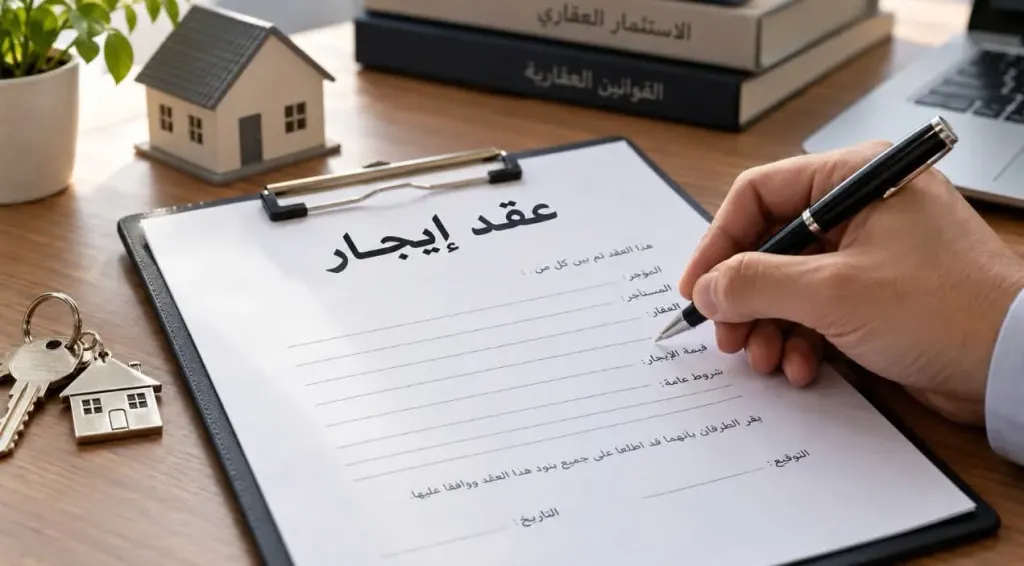 الاستثمار العقاري
القوانين العقارية
عقد إيجار
هذا العقد تم بين كل من :
المؤجر:
المستأجر:
العقار:
قيمة الإيجار:
شروط عامة:
يقر الطرفان بأنهما قد اطلعا على جميع بنود هذا العقد ووافقا عليها.
التوقيع:
التاريخ: